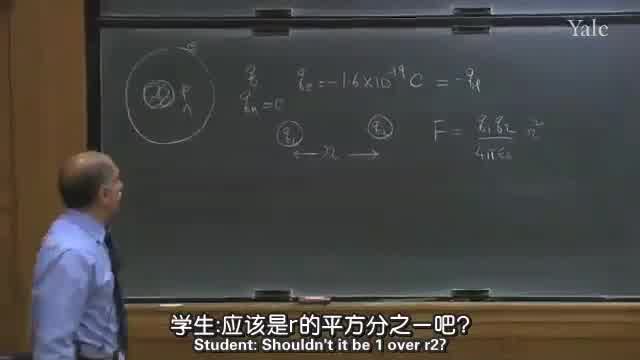 Yale
e
P
n
q qₑ = -1.6 × 10⁻¹⁹ C = -qₚ
qₙ = 0
q₁ q₂
r
F = q₁q₂ / 4πε₀ r²
学生:应该是r的平方分之一吧?
Student: Shouldn't it be 1 over r2?